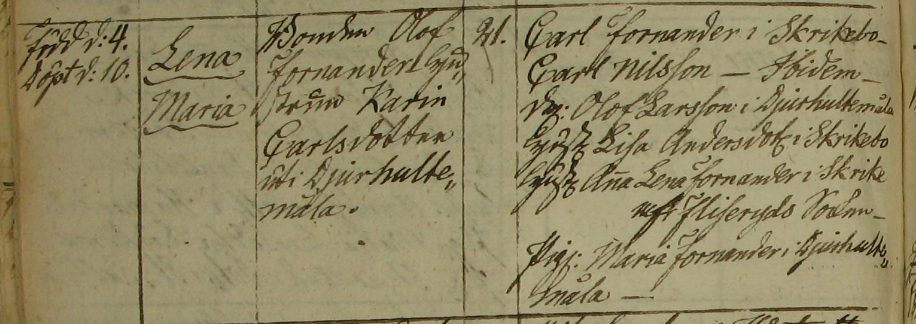 född d: 4.
Döpt d: 10.
Lena
Maria
Bonden Olof
Fornander hu„
strun Karin
Carlsdotter
uti Djurhulte„
måla.
21.
Carl Fornander i Skrikebo
Carl Nilsson — Ibidem —
dr: Olof Larsson i Djurhultemåla
Lisa Andersdotr i Skrikebo
Anna Lena Fornander i Skrike
Fliseryds Socken —
Pig: Maria Fornander i Djurhulte„
måla —